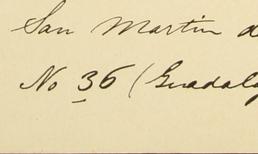 San Martin d
No 36 (Guadalq